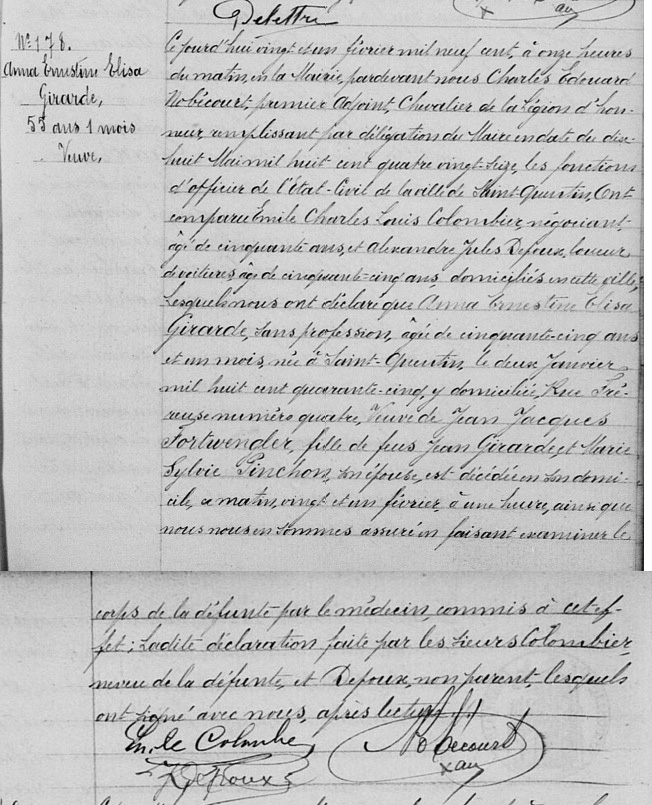 Delettre
Nº 178.
Anna Ernestine Elisa
Girarde,
55 ans 1 mois
Veuve,
Ce jourd'hui vingt et un février mil neuf cent, à onze heures
du matin, en la Mairie, pardevant nous Charles Edouard
Nobécourt, premier Adjoint, Chevalier de la Légion d'hon-
neur, remplissant par délégation du Maire en date du dix-
huit Mai mil huit cent quatre vingt-seize, les fonctions
d'officier de l'État-Civil de la ville de Saint-Quentin, Ont
comparu Emile Charles Louis Colombier, négociant,
âgé de cinquante ans, et Alexandre Jules Defoux, loueur
de voitures, âgé de cinquante-cinq ans, domiciliés en cette ville,
Lesquels nous ont déclaré que Anna Ernestine Elisa
Girarde, sans profession, âgée de cinquante-cinq ans
et un mois, née à Saint-Quentin, le deux Janvier
mil huit cent quarante-cinq, y domiciliée, Rue
numéro quatre, Veuve de Jean Jacques
Fortwendler, fille de feus Jean Girarde, et Marie
Sylvie Pinchon, son épouse, est décédée en son domi-
cile, ce matin, vingt et un février, à une heure, ainsi que
nous nous en sommes assuré en faisant examiner le
corps de la défunte par le médecin, commis à cet ef-
fet; Ladite déclaration faite par les sieurs Colombier,
neveu de la défunte, et Defoux, non parent, lesquels
ont signé avec nous, après lecture
Emile Colombier
Nobécourt
JDefoux